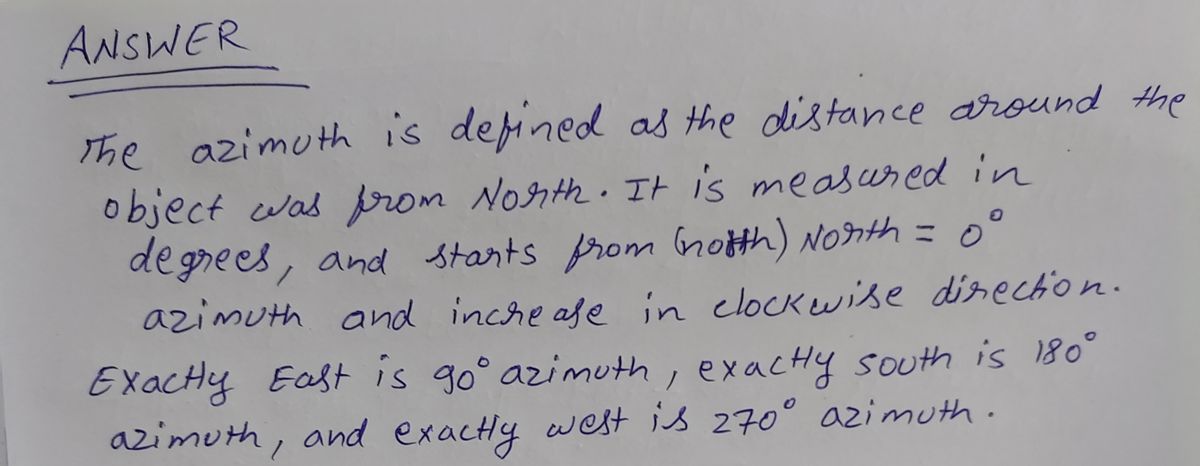 ANSWER
The azimuth is defined as the distance around the
object was from North. It is measured in
degrees, and starts from (north) North = 0°
azimuth and increase in clockwise direction.
Exactly East is 90° azimuth, exactly south is 180°
azimuth, and exactly west is 270° azimuth.